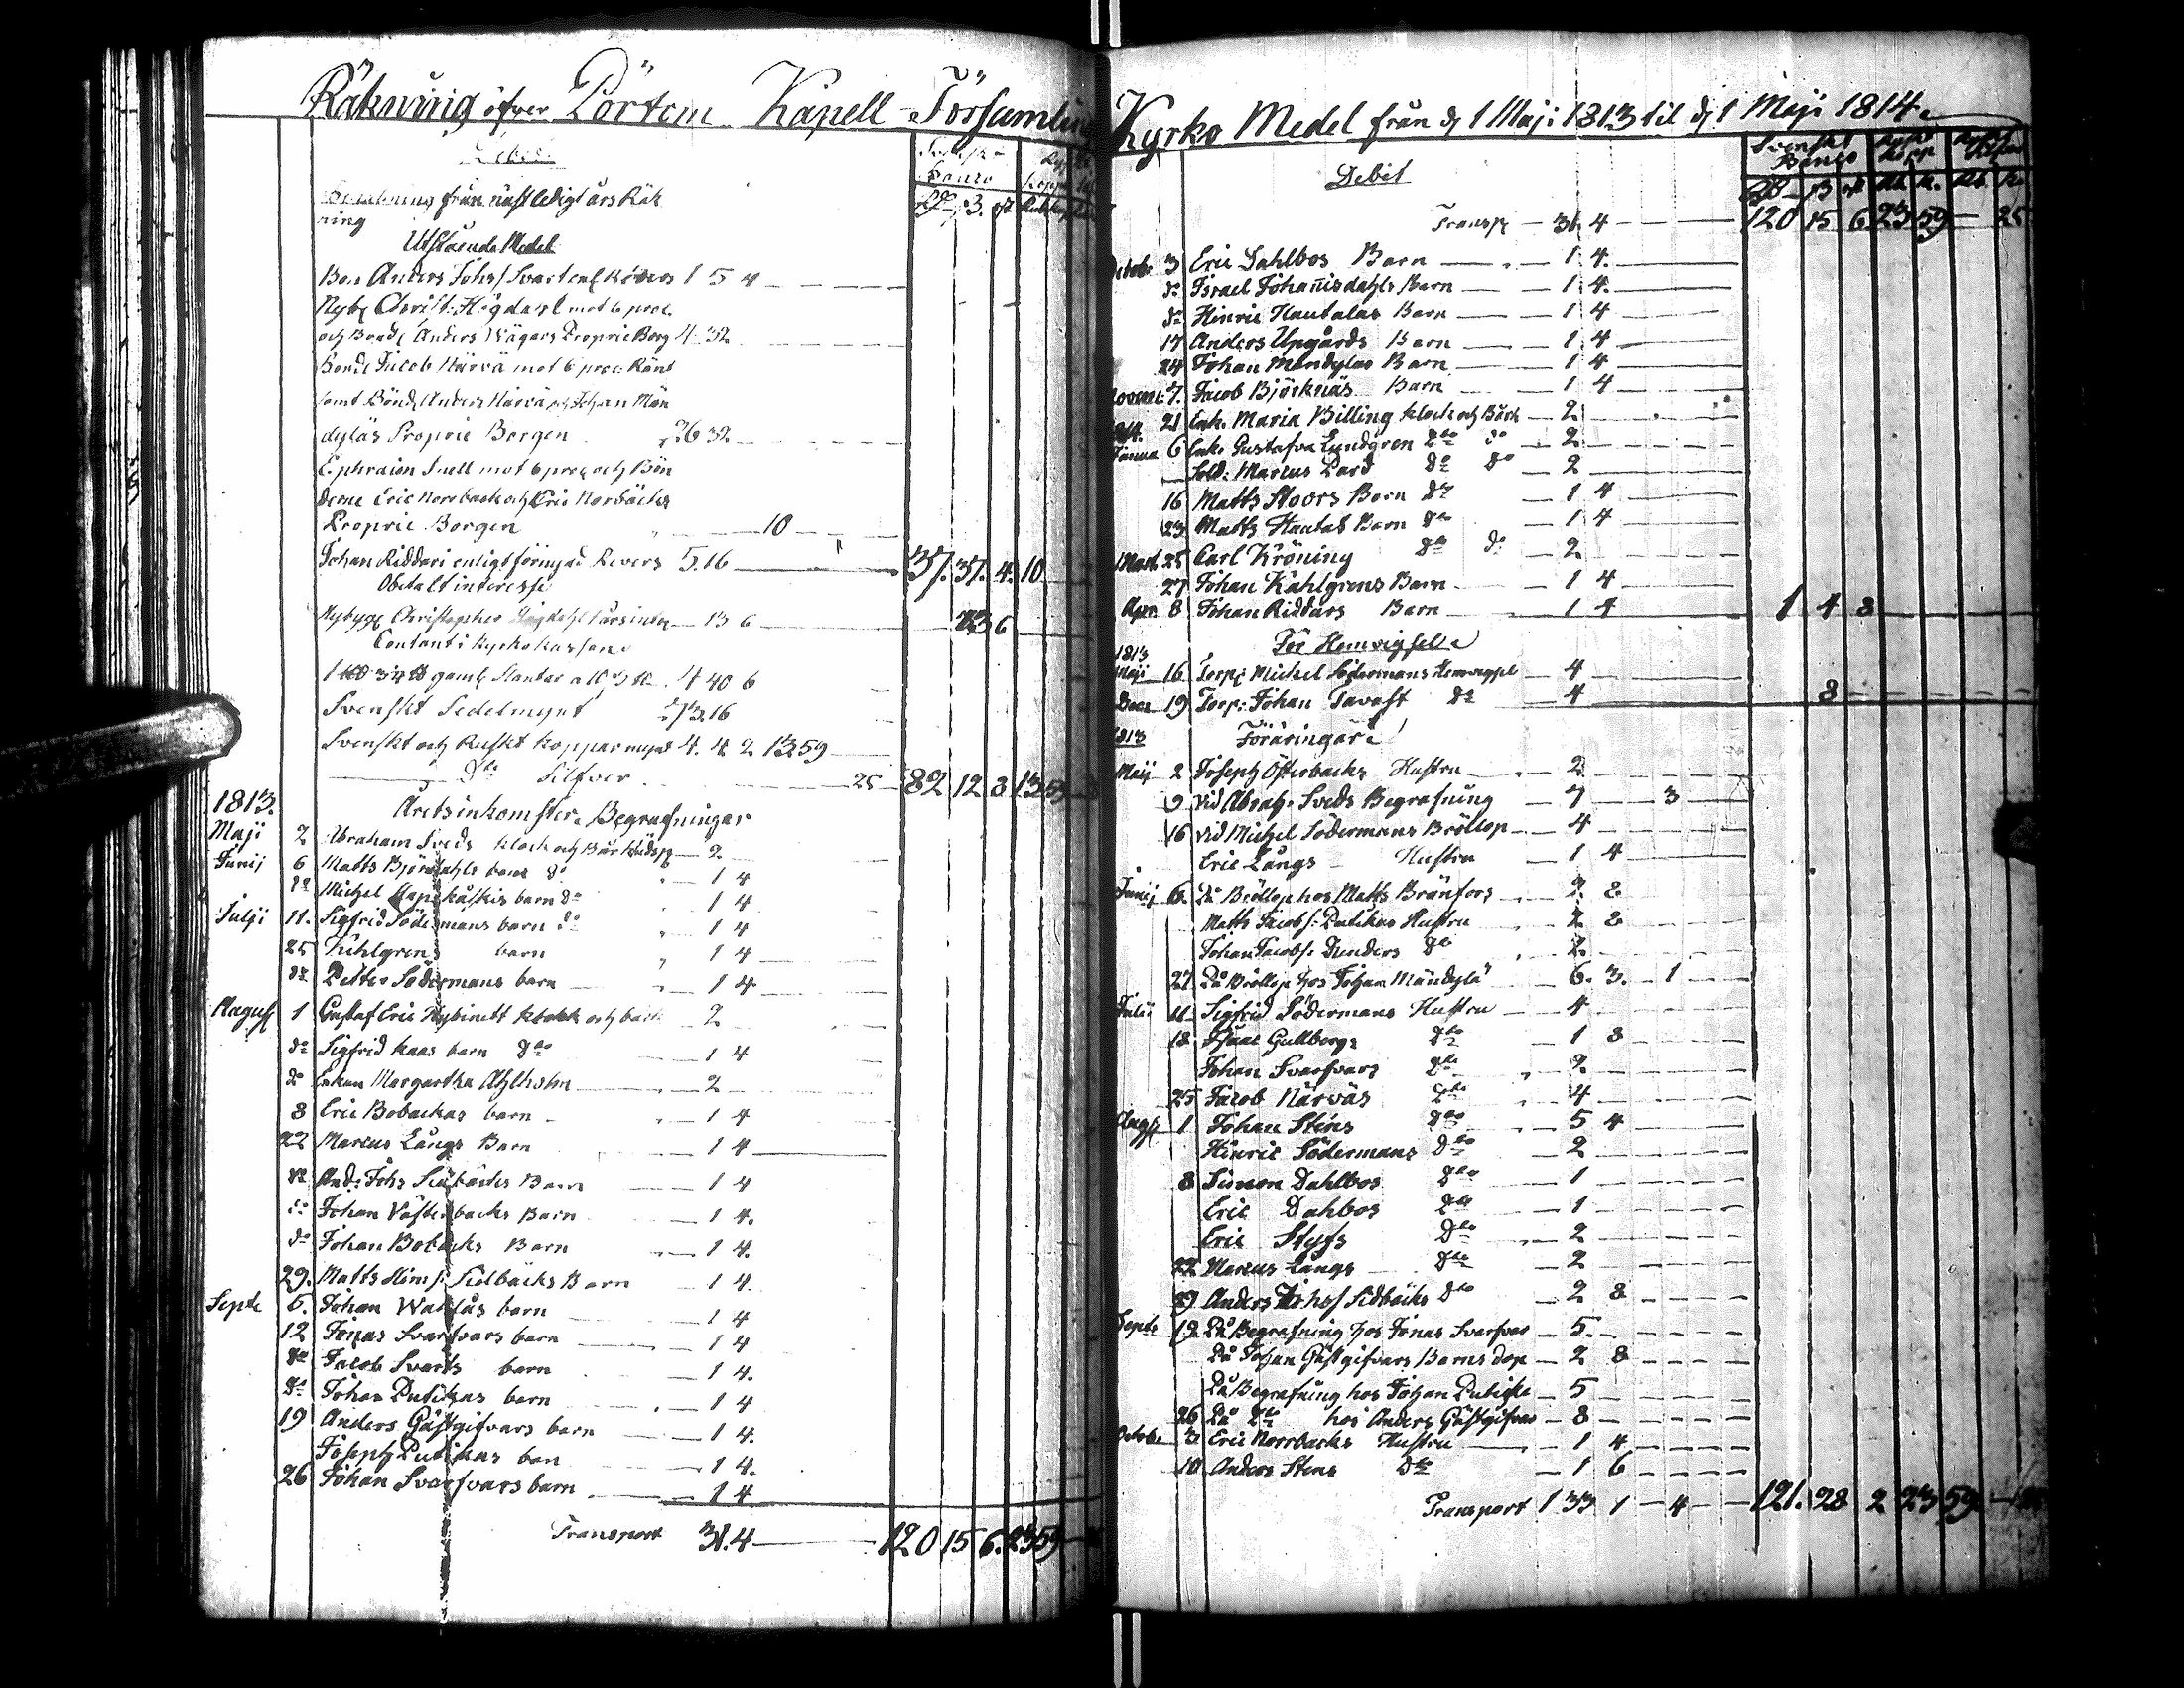 Räkning öfver Pörtom Kapell-Församling
Debet
Svenskt Banco
från nästledigt års Räk
ning
Utstående Medel
Bon Anders Johs/ Svart enl. Revers 1 5 4
Nyb. Christ: Högdahl mot 6 proc.
och Bond. Anders Wägars Proprie Borg 4 32
Bond. Jacob Närvä mot 6 proc: Ränt
samt Bönd. Anders Närvä och Johan Män
dylas Proprie Borgen 26 32
Ephraim Snell mot 6 proc och Bön
derne Eric Norrback och Eric Norrbacks
Proprie Borgen 10
Johan Riddari enligt förnyad Revers 5.16 37. 37. 4. 10
Obetalt interesse
Nybygg. Christopher Högdahl 1 års intr. 13 6 13 6
Contant i Kyrko kassan
gaml. Slantar 4 40 6
Svenskt Sedelmynt 73.16
Svenskt och Ryskt Koppar mynt 4. 4 2 13 59
Dto Silfver 25 82 12 8 13 59
1813. Årets inkomster. Begrafningar
Maji 2 Abraham Sveds klock och Bår 2
Junij 6 Matts Björndahls barn do 1 4
do Michel barn do 1 4
Julji 11. Sigfrid Södermans barn do 1 4
25 Kihlgrens barn 1 4
do Petter Södermans barn 1 4
August 1 Gustaf Eric Nybinett klock och bår 2
do Sigfrid Kaas barn Dto 1 4
do Enkan Margaretha Ahlholm 2
8 Eric Bobackas barn 1 4
22 Marcus Långs Barn 1 4
do And: Johs Sidbäcks Barn 1 4
do Johan Västerbacks Barn 1 4.
do Johan Bobacks Barn 1 4.
29. Matts Hinrs: Sidbäcks Barn 1 4.
Septe 5. Johan Wallås barn 1 4
12 Jonas Svarfvars barn 1 4
do Jacob Svarts barn 1 4.
do Johan Putikas barn 1 4
19 Anders Gästgifvars barn 1 4.
Joseph Putikas barn 1 4.
26 Johan Svarfvars barn 1 4
Transport 31.4 120 15 6. 23 59
Kyrko Medel från d. 1 Maji 1813 til d. 1 Maji 1814.
Debet
Svenskt Banco
Transp 31 4 120 15 6 23 59 25
Octobr 3 Eric Dahlbos Barn 1 4.
do Israel Johanisdahls Barn 1 4.
do Hinric Hautalas Barn 1 4
17 Anders Upgårds Barn 1 4
24 Johan Mändylas Barn 1 4
Novem: 7. Jacob Björknäs Barn 1 4
21 Enk. Maria Billing klock och Bår 2
1814. Janua 6 Enk. Gustafva Lundgren Dto do 2
Sold: Marcus Pard Do Do 2
16 Matts Stoors Barn Do 1 4
23 Matts Hautas Barn Do 1 4
Mart 25 Carl Kröning Do do 2
27 Johan Kahlgrens Barn 1 4
Apr. 8 Johan Riddars Barn 1 4 1 4 8
För Hemvigsel
1813
Maji 16 Torp: Michel Södermans Hemvigsel 4
Dece 19 Torp: Johan Tavast Do 4 8
1813 Föräringar
Maij 2 Joseph Österbacks Hustru 2
9 vid Abrah: Sveds Begrafning 7 3
16 vid Michel Södermans Bröllop 4
Eric Långs Hustru 1 4
Junij 6. På Bröllop hos Matts Bränfors 2 8
Matts Jacobs: Putikas Hustru 2 8
Johan Jacobs: Dunders Do 2
27 På Bröllop hos Johan Mändylä 6. 3. 1
Julii 11 Sigfrid Södermans Hustru 4
18 Isaac Gullbergs Dto 1 8
Johan Svarfvars Dto 2
25 Jacob Närväs Dto 4
Augs 1 Johan Stens Dto 5 4
Hinric Södermans Dto 2
8 Simon Dahlbos Dto 1
Eric Dahbos Dto 1
Eric Styfs Dto 2
22 Marcus Långs Dto 2
29 Anders Johs/ Sidbäcks Dto 2 8
Septe 12 På Begrafning hos Jonas Svarfvar 5.
På Johan Gästgifvars Barns dop 2 8
På Begrafning hos Johan Putikas 5
26 På Dto hos Anders Gästgifvar 8
October 3 Eric Norrbacks Hustru 1 4
10 Anders Stens Dto 1 6
Transport 1 33 1 4 121. 28 2 23 59